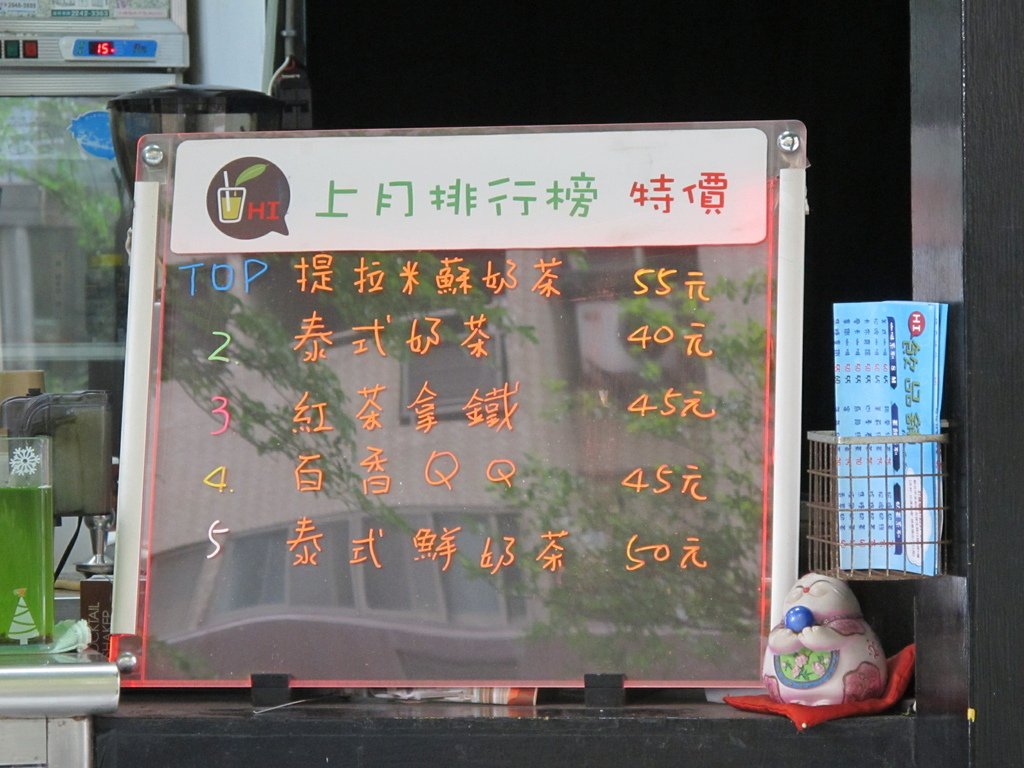 HI 上月排行榜 特價
TOP 提拉米蘇奶茶 55元
2. 泰式奶茶 40元
3 紅茶拿鐵 45元
4. 百香QQ 45元
5 泰式鮮奶茶 50元
15
HI 飲品